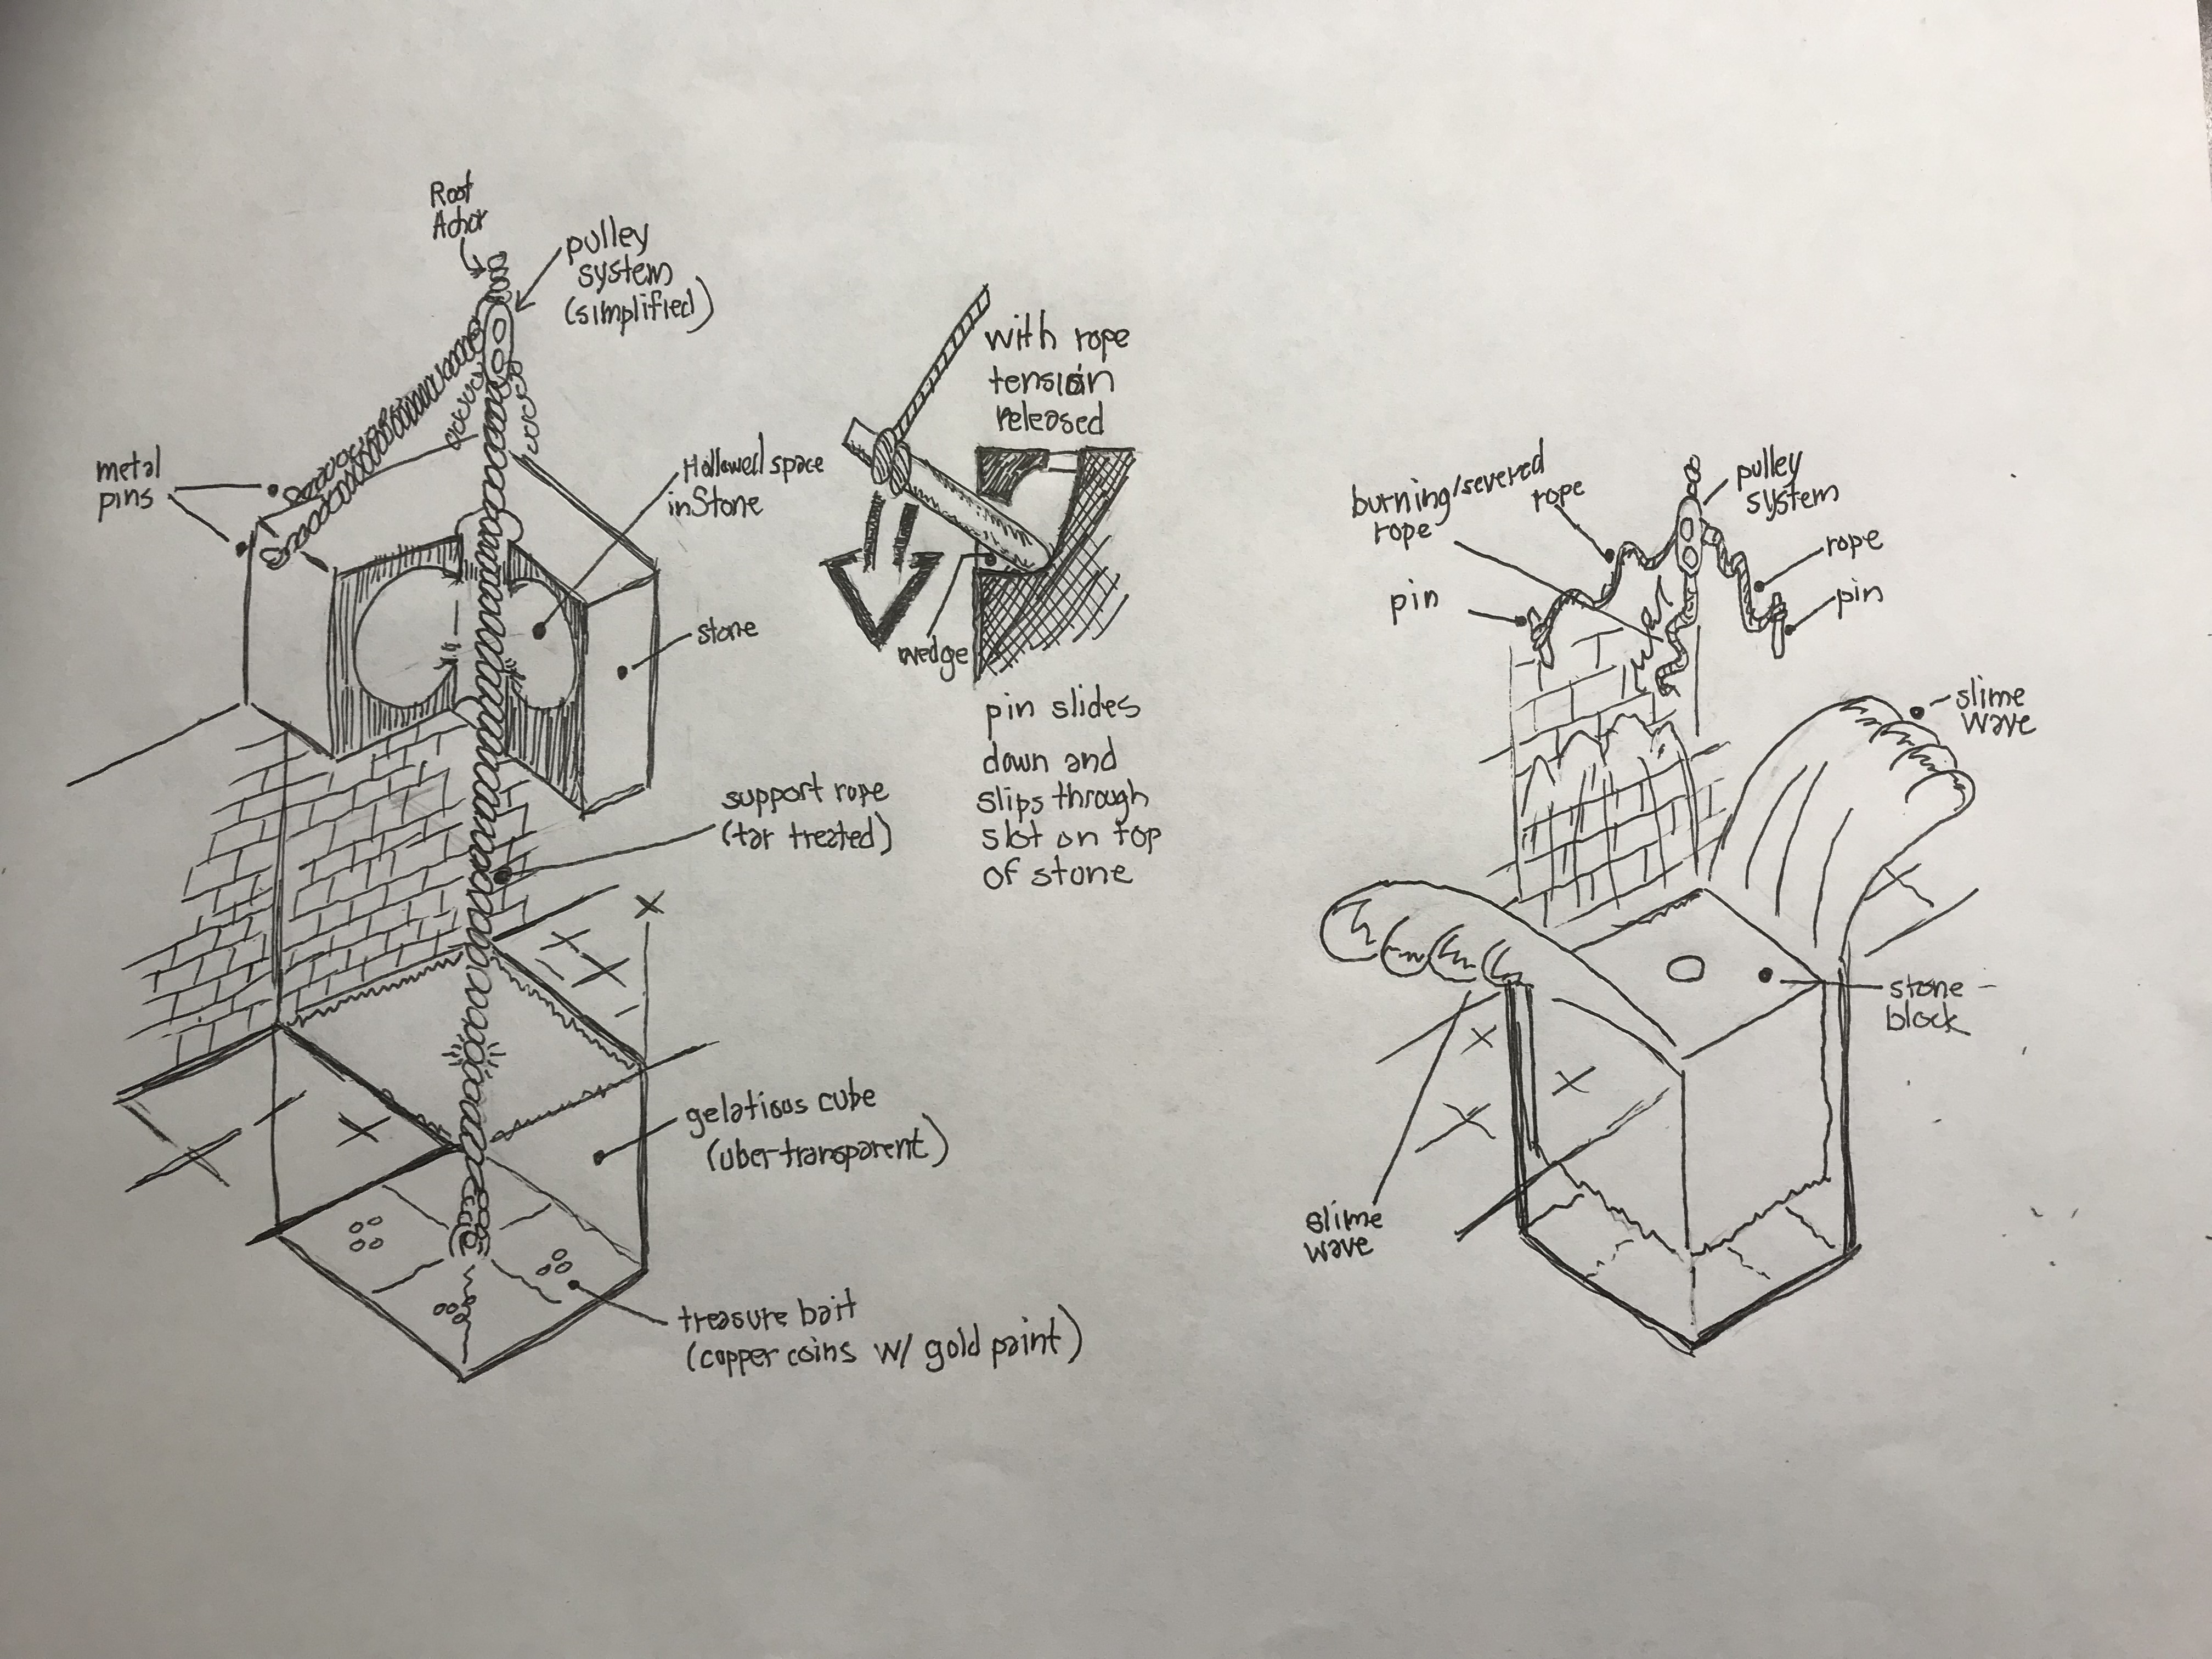 Root
Achor
pulley
system
(simplified)
metal
pins
Hollowed space
in Stone
stone
support rope
(tar treated)
gelatious cube
(uber-transparent)
treasure bait
(copper coins w/ gold paint)
with rope
tension
released
wedge
pin slides
down and
slips through
slot on top
of stone
burning/severed
rope
rope
pulley
system
rope
pin
pin
slime
wave
stone
block
slime
wave